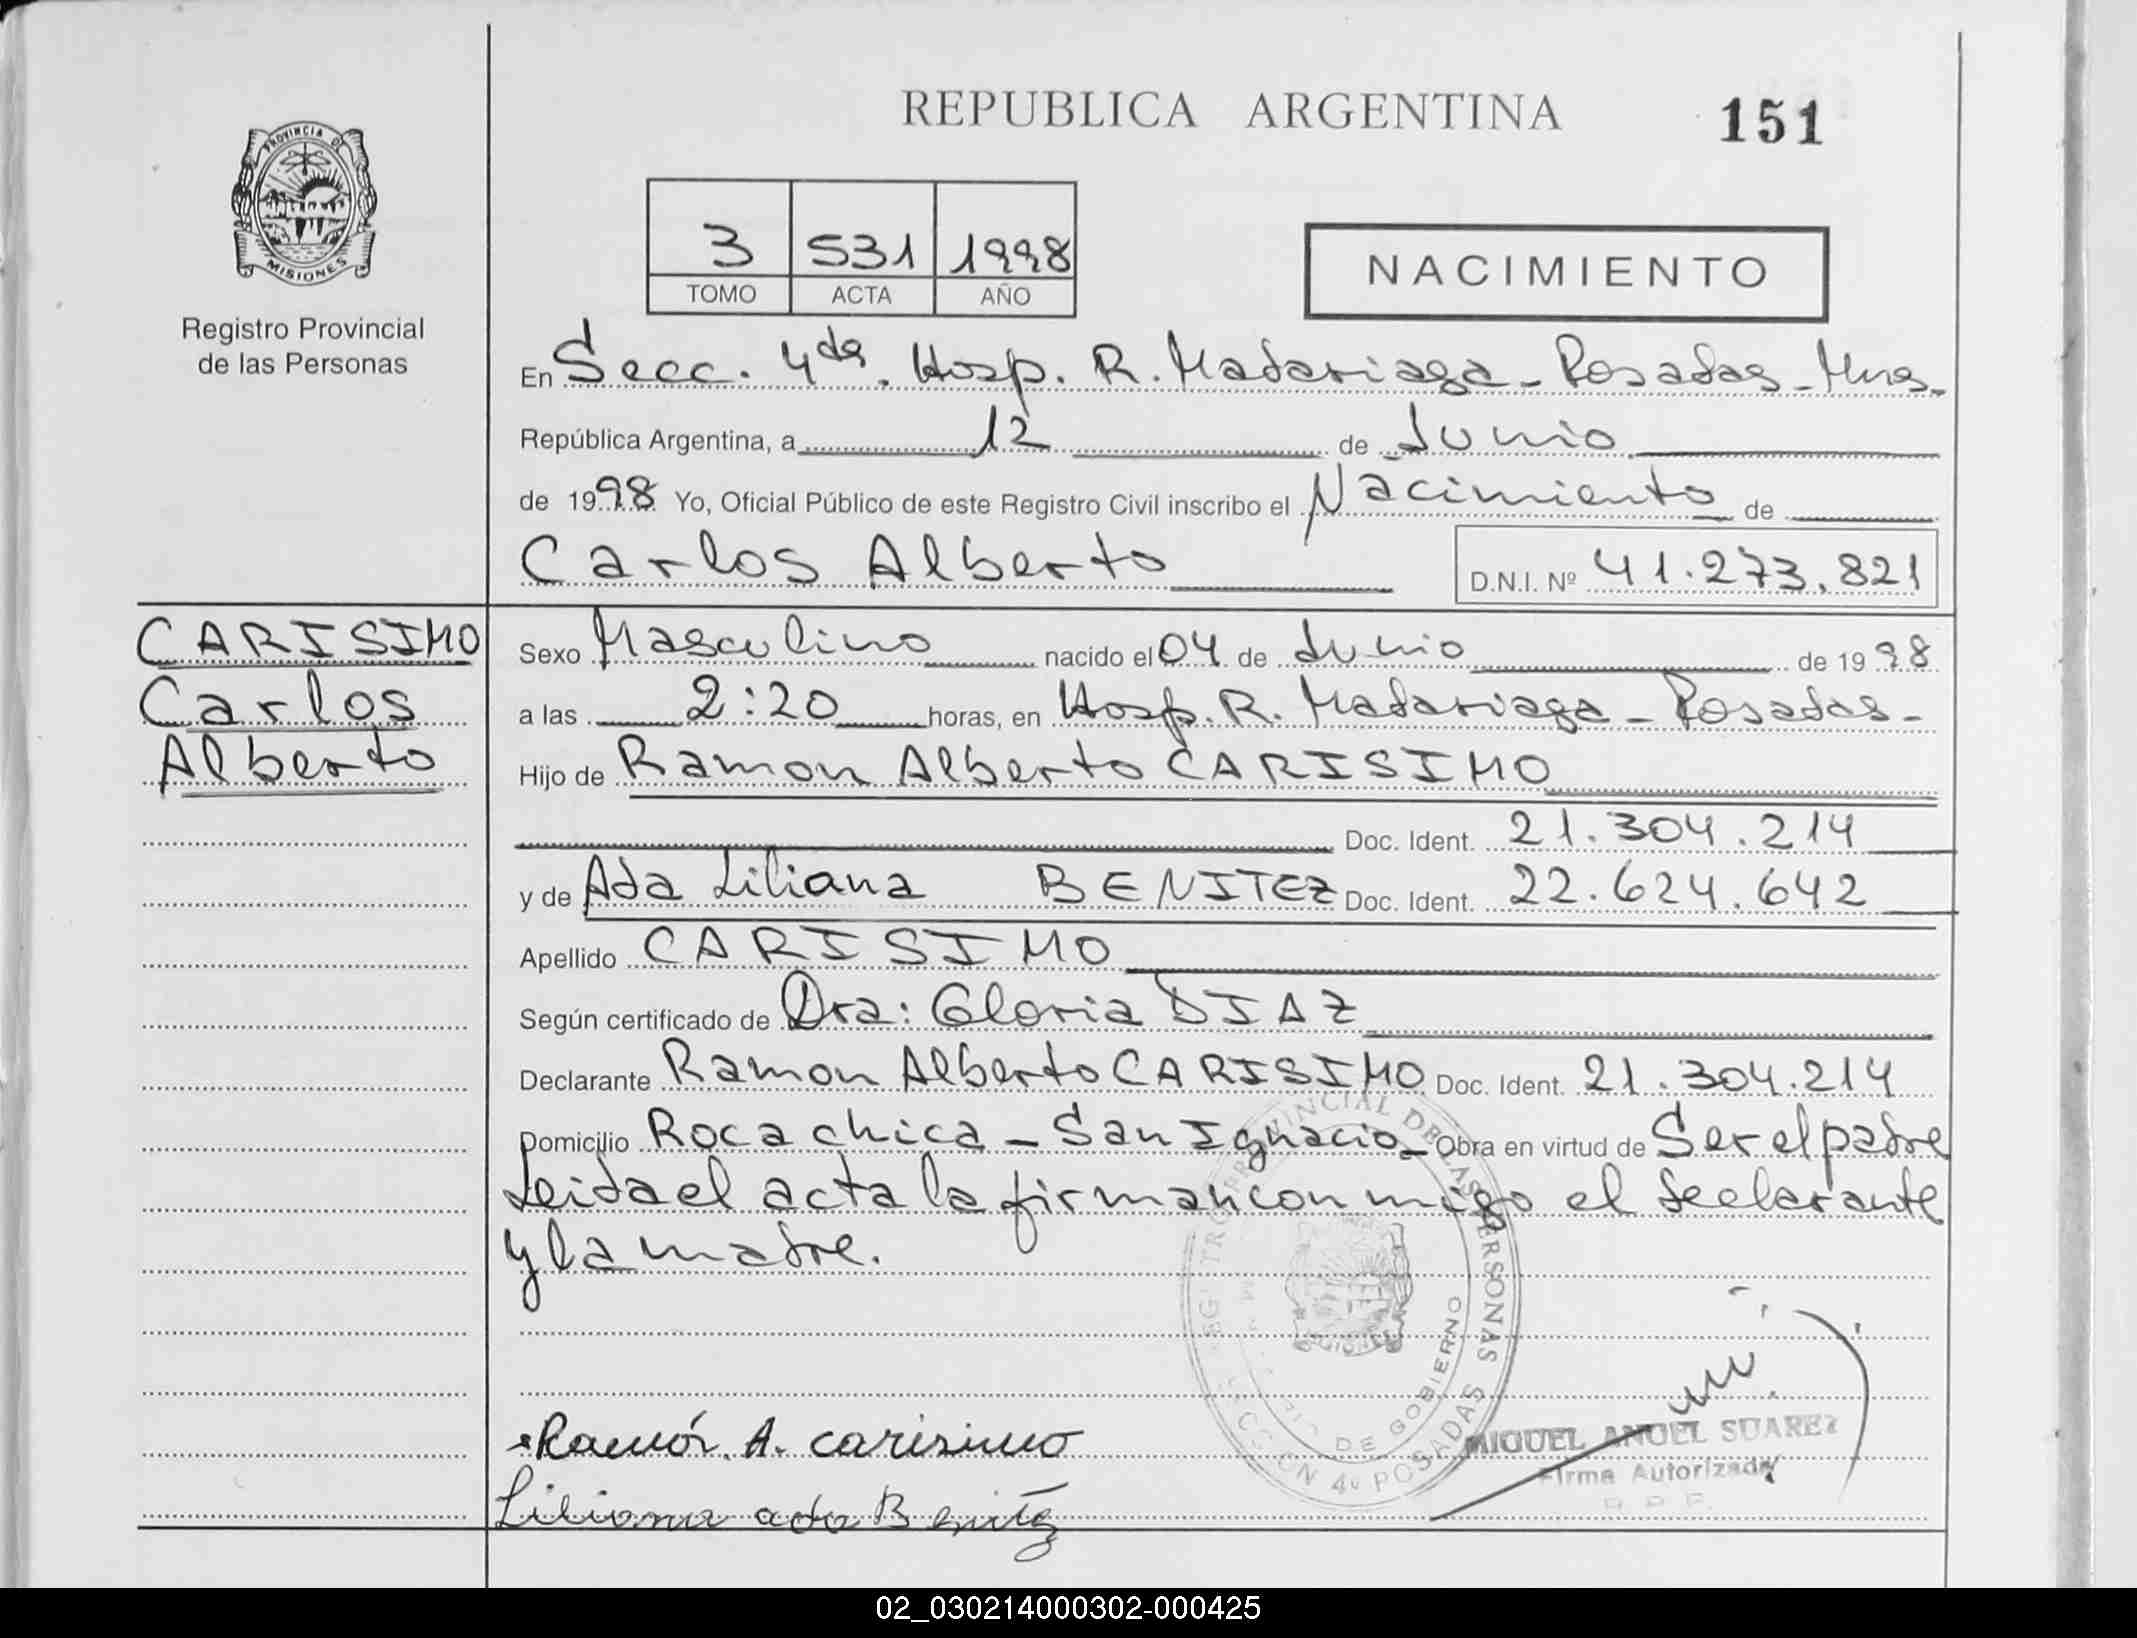 REPUBLICA ARGENTINA
151
PROVINCIA DE
MISIONES
Registro Provincial
de las Personas
3 531 1998
TOMO ACTA AÑO
NACIMIENTO
En Secc. 4da. Hosp. R. Madariaga - Posadas - Mnes.
República Argentina, a 12 de Junio
de 1998 Yo, Oficial Público de este Registro Civil inscribo el Nacimiento de
Carlos Alberto D.N.I. Nº 41.273.821
CARISIMO
Carlos
Alberto
Sexo Masculino nacido el 04 de Junio de 1998
a las 2:20 horas, en Hosp. R. Madariaga - Posadas -
Hijo de Ramon Alberto CARISIMO
Doc. Ident. 21.304.214
y de Ada Liliana BENITEZ Doc. Ident. 22.624.642
Apellido CARISIMO
Según certificado de Dra: Gloria DIAZ
Declarante Ramon Alberto CARISIMO Doc. Ident. 21.304.214
Domicilio Roca chica - San Ignacio - Obra en virtud de Ser el padre
Leida el acta la firman conmigo el declarante
y la madre.
Ramón A. carisimo
Liliana ada Benitez
DE LAS PERSONAS
DE GOBIERNO
4º POSADAS
MIGUEL ANGEL SUAREZ
Firma Autorizada
02_030214000302-000425